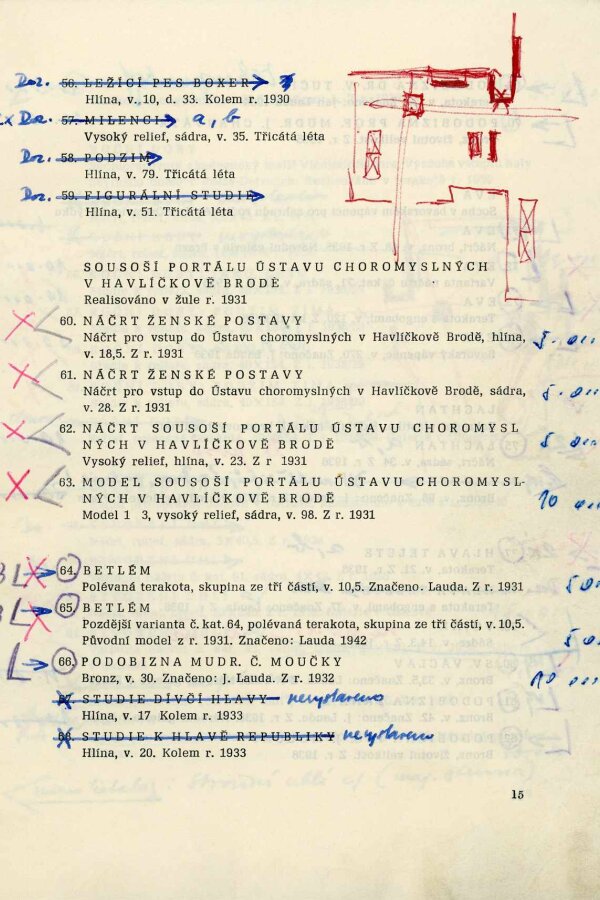 Doz. 56. LEŽÍCÍ PES BOXER
Hlína, v. 10, d. 33. Kolem r. 1930
Doz. 57. MILENCI a, b
Vysoký relief, sádra, v. 35. Třicátá léta
Doz. 58. PODZIM
Hlína, v. 79. Třicátá léta
Doz. 59. FIGURÁLNÍ STUDIE
Hlína, v. 51. Třicátá léta
SOUSOŠÍ PORTÁLU ÚSTAVU CHOROMYSLNÝCH
V HAVLÍČKOVĚ BRODĚ
Realisováno v žule r. 1931
60. NÁČRT ŽENSKÉ POSTAVY
Náčrt pro vstup do Ústavu choromyslných v Havlíčkově Brodě, hlína, 5
v. 18,5. Z r. 1931
61. NÁČRT ŽENSKÉ POSTAVY
Náčrt pro vstup do Ústavu choromyslných v Havlíčkově Brodě, sádra, 5
v. 28. Z r. 1931
62. NÁČRT SOUSOŠÍ PORTÁLU ÚSTAVU CHOROMYSL
NÝCH V HAVLÍČKOVĚ BRODĚ 5
Vysoký relief, hlína, v. 23. Z r 1931
63. MODEL SOUSOŠÍ PORTÁLU ÚSTAVU CHOROMYSL-
NÝCH V HAVLÍČKOVĚ BRODĚ 10
Model 1 3, vysoký relief, sádra, v. 98. Z r. 1931
64. BETLÉM
Polévaná terakota, skupina ze tří částí, v. 10,5. Značeno. Lauda. Z r. 1931 5
65. BETLÉM
Pozdější varianta č. kat. 64, polévaná terakota, skupina ze tří částí, v. 10,5.
Původní model z r. 1931. Značeno: Lauda 1942 5
66. PODOBIZNA MUDR. Č. MOUČKY
Bronz, v. 30. Značeno: J. Lauda. Z r. 1932 10
67. STUDIE DÍVČÍ HLAVY nevystaveno
Hlína, v. 17 Kolem r. 1933
68. STUDIE K HLAVĚ REPUBLIKY nevystaveno
Hlína, v. 20. Kolem r. 1933
15